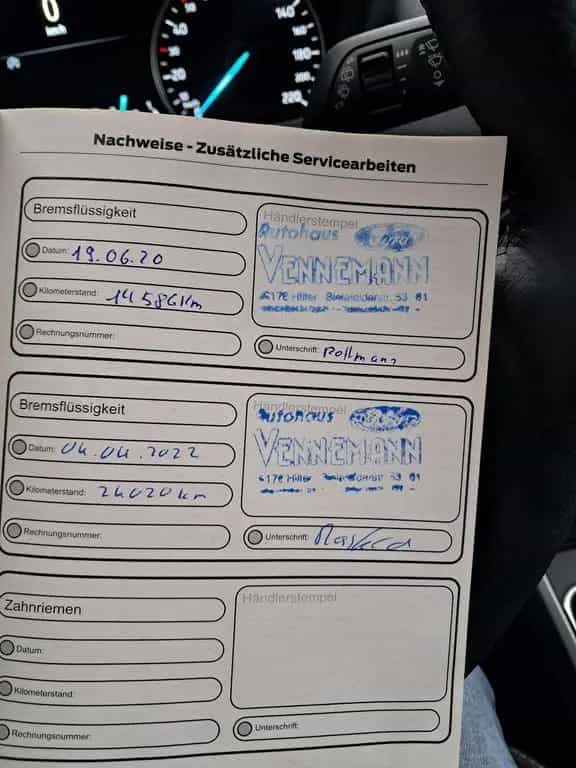 0
km/h
140
180
20
220
Nachweise - Zusätzliche Servicearbeiten
Bremsflüssigkeit
Datum: 19.06.20
Kilometerstand: 14586 Km
Rechnungsnummer:
Händlerstempel
Autohaus Ford
VENNEMANN
Hilter Bielefelderstr. 53
Unterschrift:
Bremsflüssigkeit
Datum: 04.04.2022
Kilometerstand: 24020 km
Rechnungsnummer:
Händlerstempel
Autohaus
VENNEMANN
Hilter
Unterschrift:
Zahnriemen
Datum:
Kilometerstand:
Rechnungsnummer:
Händlerstempel
Unterschrift: